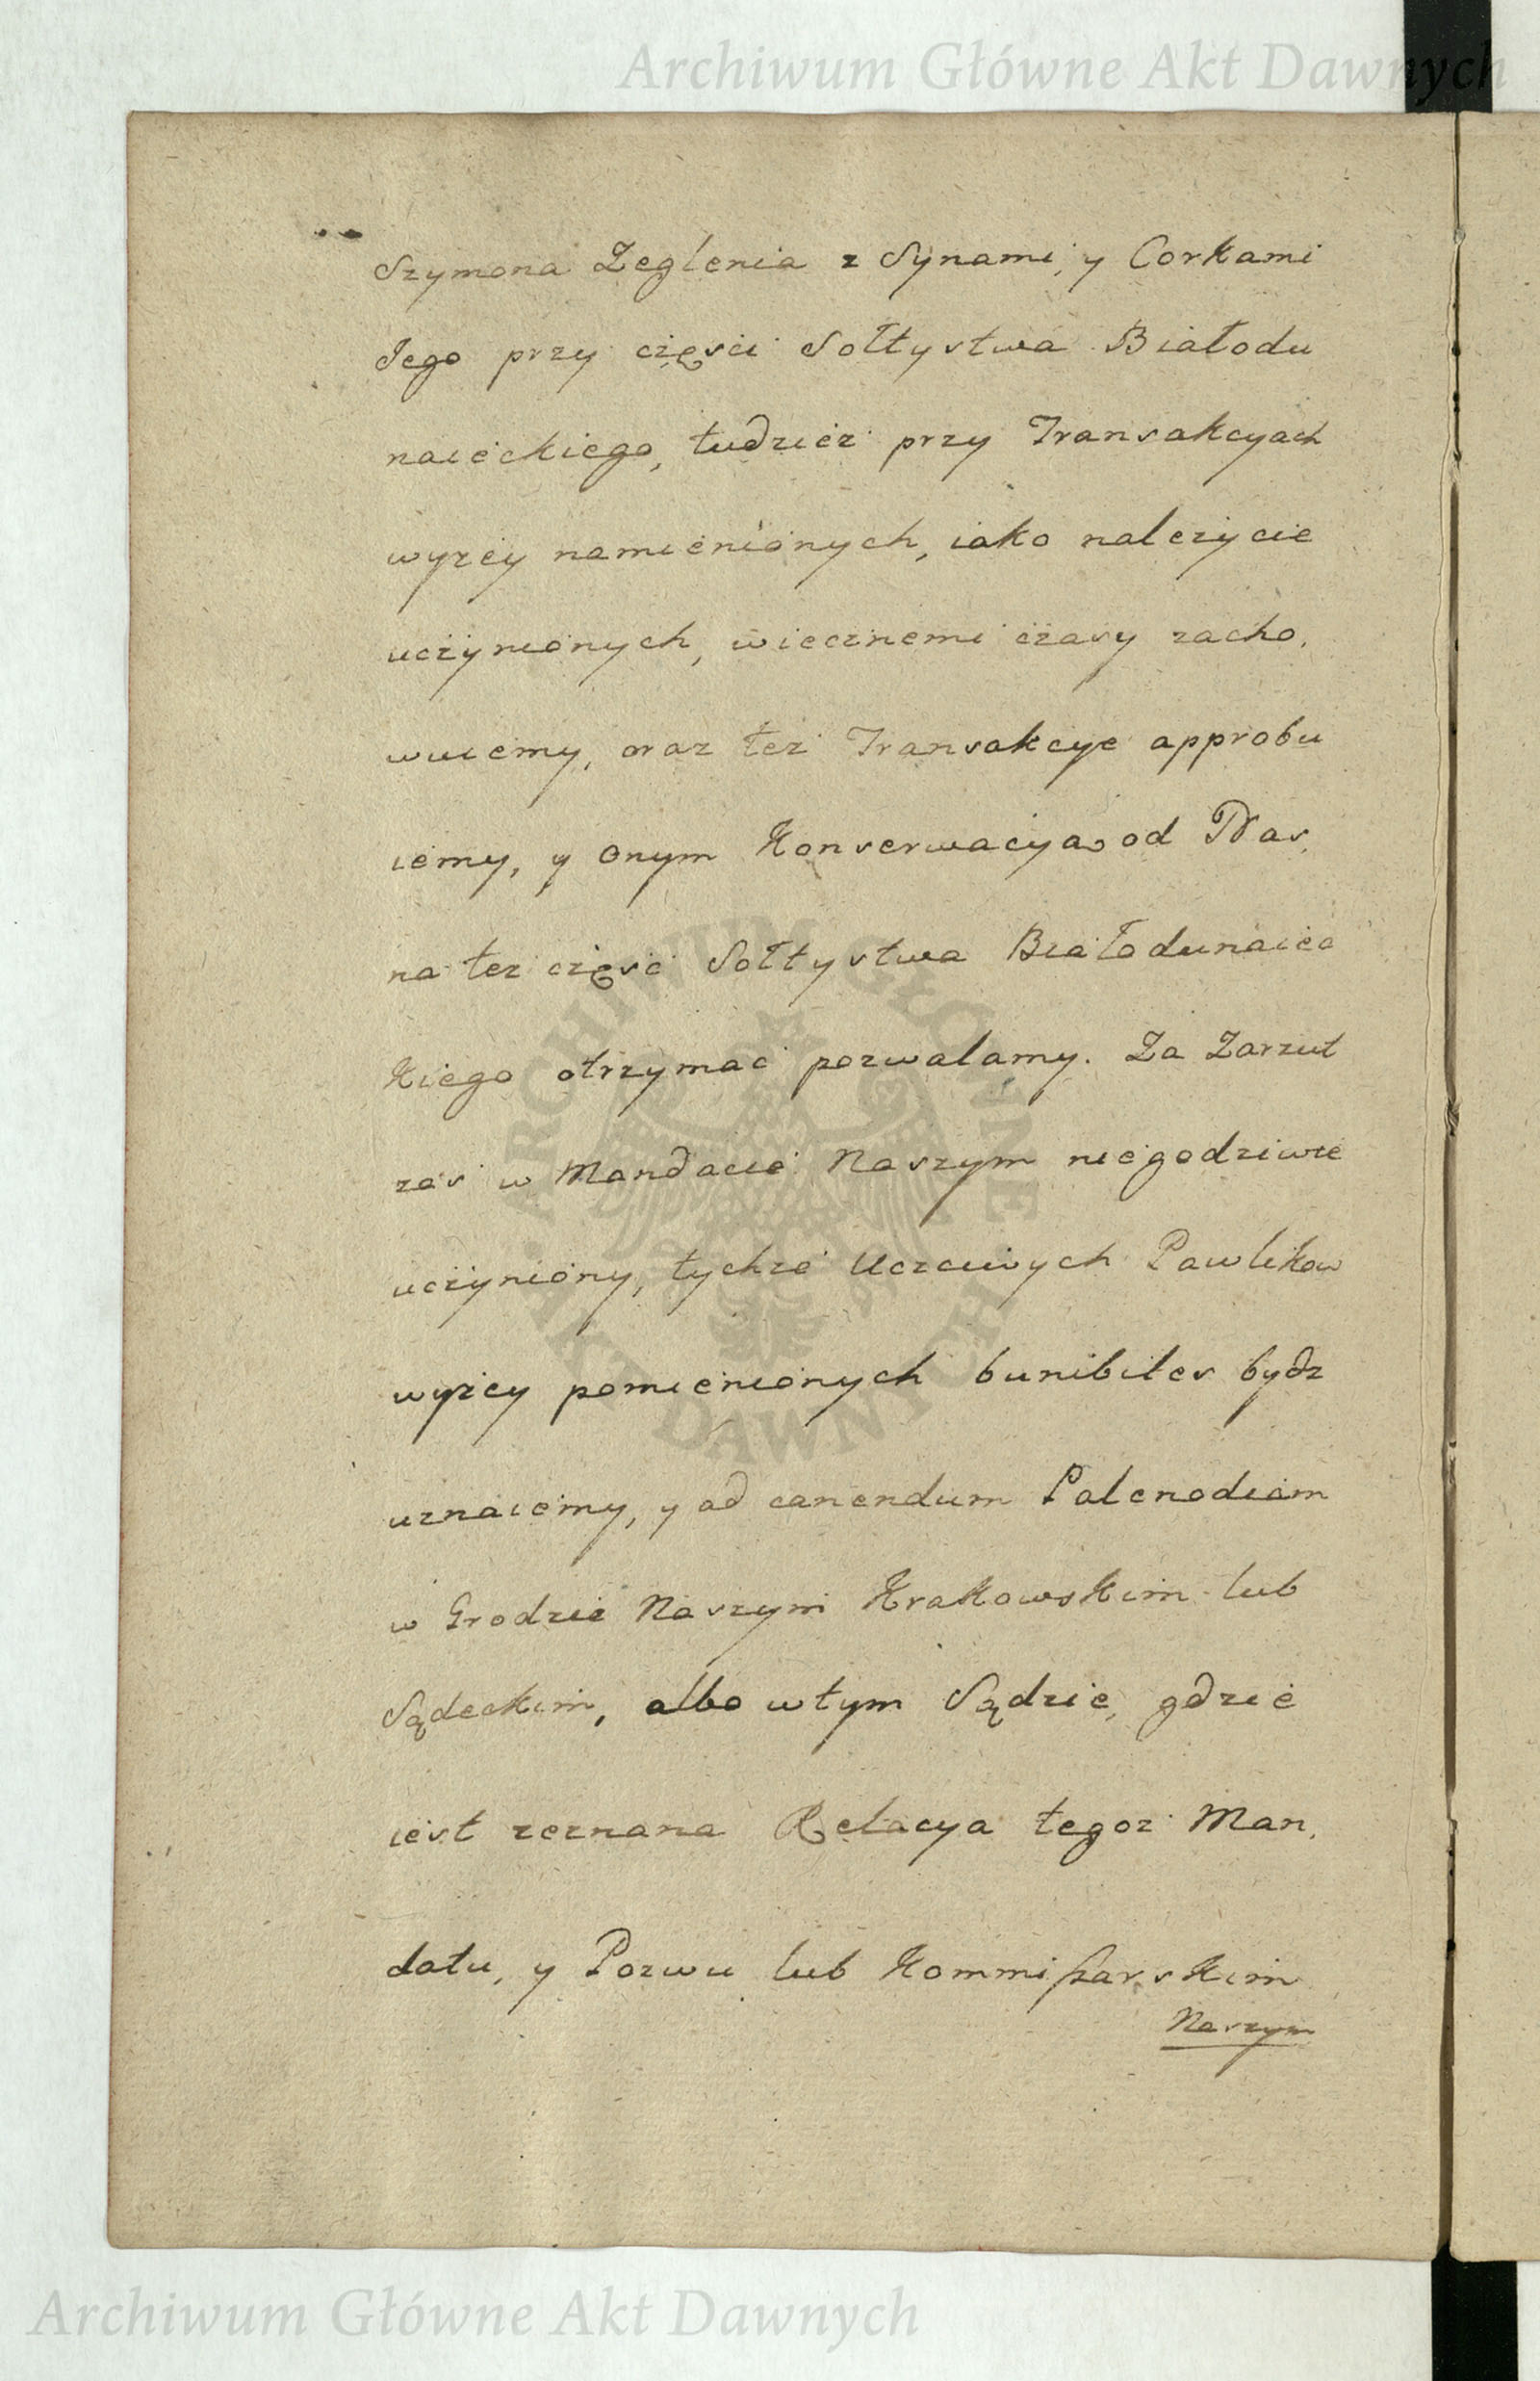 Archiwum Główne Akt Dawnych
Szymona Zeglenia z Synami, y Corkami
Jego przy częsci Sołtystwa Białodu
naieckiego, tudzież przy Transakcyach
wyżey namienionych, iako należycie
uczynionych, wiecznemi czasy zacho,
wuiemy, oraz też Transakcye approbu
iemy, y onym Konserwacyą od Nas,
na tez częsć Sołtystwa Białodunaiec
kiego otrzymać pozwalamy. Za Zarzut
zaś w Mandacie Naszym niegodziwie
uczyniony, tychże Uczciwych Pawlikow
wyżey pomienionych bunibiles bydz
uznaiemy, y ad canendum Palenodiam
w Grodzie Naszym Krakowskim lub
Sądeckim, albo w tym Sądzie, gdzie
iest zeznana Relacya tegoż Man,
datu, y Pozwu lub Kommißarskim
Naszym
ARCHIWUM GŁÓWNE AKT DAWNYCH
Archiwum Główne Akt Dawnych